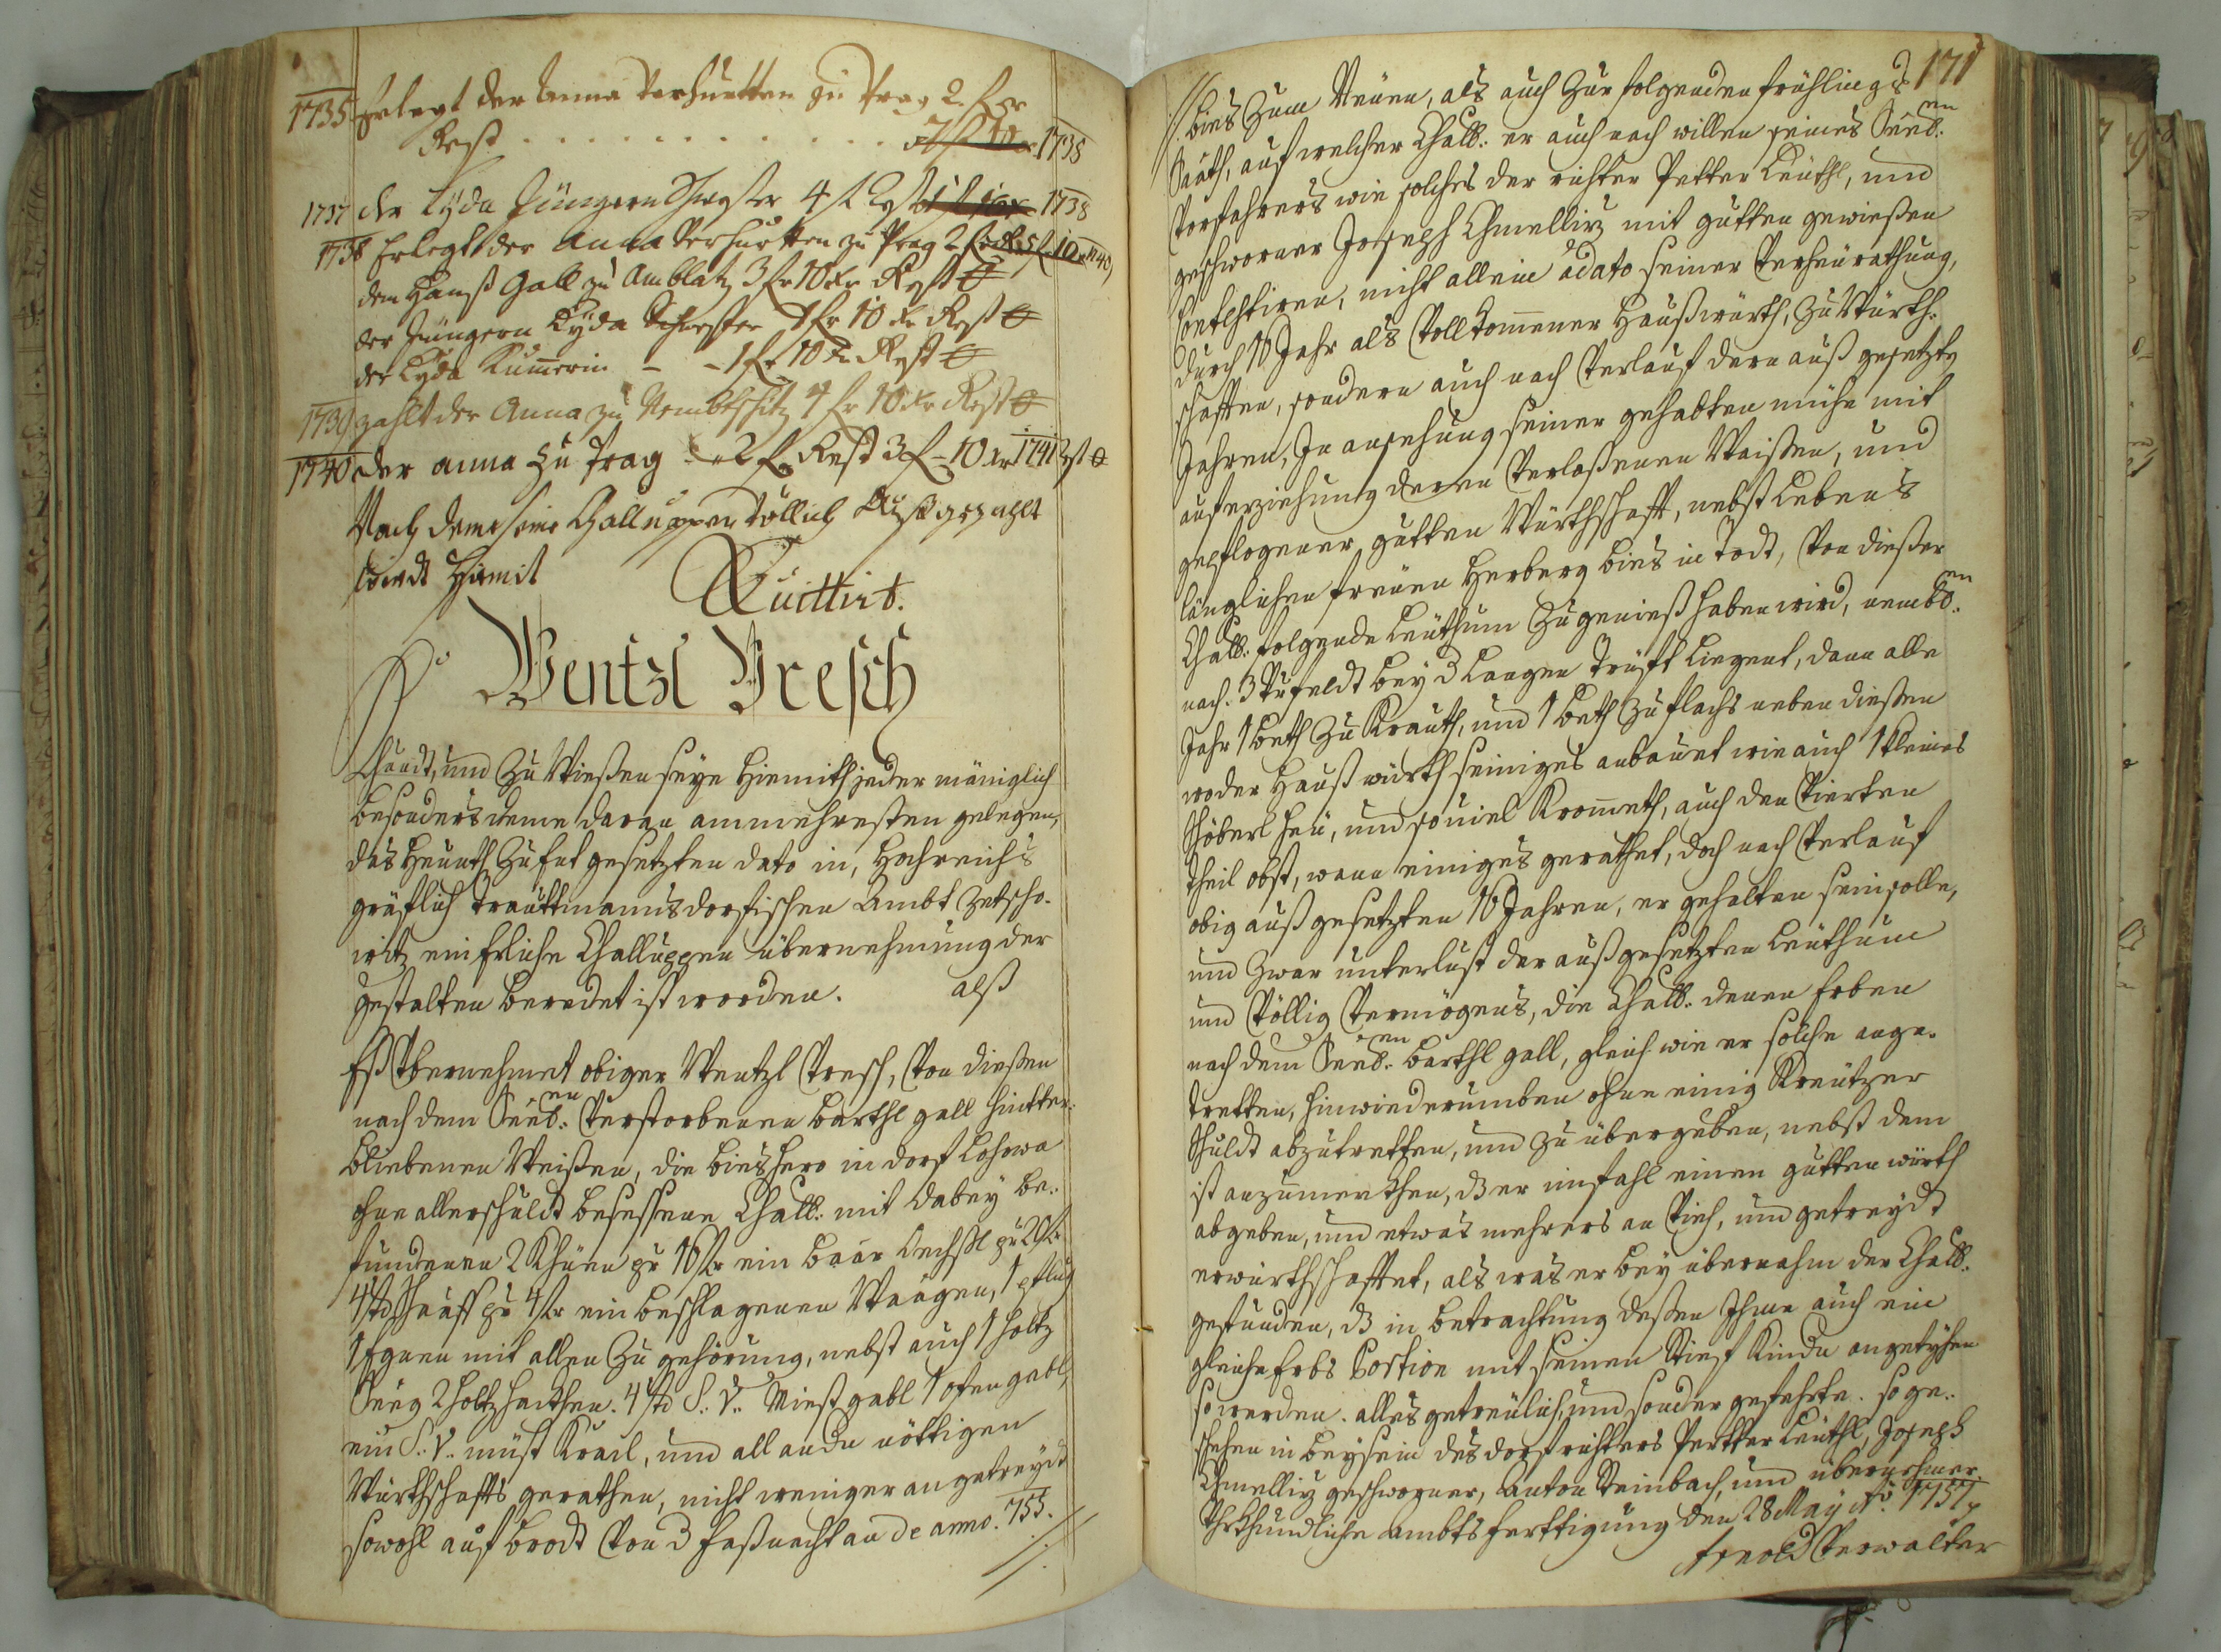 1735 Erlegt der Anna Verhurtten zu Prag 2 f xr
Rest . . . . . . . . . . . . 7 f 10 xr 1738
1737 der Lyda Jüngern Schwester 4 f Rest 1 f 10 xr 1738
1738 Erlegt der Anna Verhurtten zu Prag 2 f Rest 5 f 10 xr 1740
dem Hanß Gall zu Amblatz 3 fr 10 xr Rest 0
der Jüngern Lyda Schwester 1 fr 10 xr Rest 0
der Lyda Kumerin – – 1 fr 10 xr Rest 0
1739 zahlt der Anna zu 4 fr 10 xr Rest 0
1740 der anna Zu Prag 2 f Rest 3 f – 10 xr 1741 Rst 0
Nach deme seine Challuppen völlich Außgezahlt
wirdt Hiemit
Quittirt.
Wentzl Presch
Khundt, und Zu Wießen seye Hiemith jeder mäniglich
besonders deme daran ammehresten gelegen,
das Heunth Zu End gesetzten dato in, Hochreichs
gräfflich Trauttmannsdorfischen Ambt Zetscho-
witz ein Challuppen übernehmung der
gestalten beredet ist worden. alß
Eß Übernehmet obiger Wentzl Presch, Von dießen
nach dem Seel:en Verstorbenen Barthl Gall hintter-
bliebenen Weißen, die bieshero in dorf Lohowa
ohne aller schuldt besessene Chall: mit dabey be-
fundenen 2 Khüen pr 16 fr ein baar Oechßl pr 20 fr
4 std Schaaff pr 4 fr ein beschlagenen Waagen, 1 pflug
1 Egnen mit allen Zu gehörung, nebst auch 1 holtz
Seeg 2 holtzhackhen. 4 std S: V: Miestgabl 1 ofengabl,
ein S: V: müst Krail, und all andre nöttigen
Würthschaffts gerathen, nicht weniger an getreydt
sowohl auf brodt Von d faßnacht an de anno. 755.
171
bies Zum Neuen, als auch Zur folgenden frühlings
Saath, auf welcher Chall: er auch nach willen seines Seel:en
Vorfahrers wie solches der richter Petter Leuthl, und
geschworner Joseph Chmellirz mit gutten gewießen
, nicht allein a dato seiner Verheurathung,
durch 10 Jahr als Vollkomener Haußwürth, Zu Würth-
schaften, sondern auch nach Verlauf deren auß gesetzten
Jahren, In ansehung seiner gehabten mühe mit
auferziehung deren Verlaßenen Waißen, und
gepflogener gutten Würthschaft, nebst Lebens
länglichen freüen Herberg bies in Todt, Von dießer
Chall: folgende Leuthum Zu genieß haben wird, nembl:en
nach. 3 feldt bey d Langen Liegent, dann alle
Jahr 1 beth Zu Krauth, und 1 beth Zu flachs neben dießen
wo der Hauß würth seiniges anbauet wie auch 1 kleines
Schöberl heü, und so viel Krometh, auch den Vierten
theil obst, wann einiges gerathet, doch nach Verlauf
obig außgesetzten 10 Jahren, er gehalten sein solle,
und Zwar unterlust der außgesetzten Leuthum
und Völlig Vermögens, die Chall: denen Erben
nach dem Seel:en Barthl Gall, gleich wie er solche ange-
tretten, hinwiederumben ohne einig Kreützer
Schuldt abzutretten, und zu übergeben, nebst dem
ist anzumerkhen, d er imfahl einen gutten würth
abgeben, und etwas mehrers an Vieh, und getreydt
erwürthschafftet, als was er bey übernahm der Chall:
gefunden, d in betrachtung deßen Ihme auch ein
gleiche Erbs Portion mit seinen Stief Kinder angetyhen
so werden. alles getreülich, und sonder gefehrte. so ge-
schehen in beysein des dorf richters Petter Leuthl, Joseph
Chmelliz geschworner, Anton Steinbach, und übernehmer.
Uhrkhundliche Ambts ferttigung den 28 May Ao. 1757
Verwalter